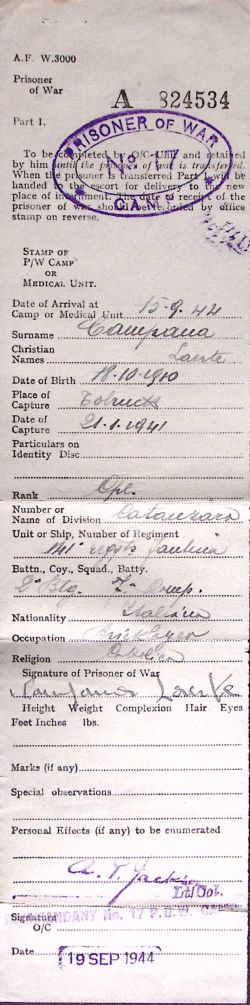 A.F. W.3000
Prisoner
of War
A 824534
Part 1.
PRISONER OF WAR
No. 17
CAMP
To be completed by O/C Unit and retained
by him until the prisoner of war is transferred.
When the prisoner is transferred Part 1 will be
handed to the escort for delivery to the new
place of internment. The date of receipt of the
prisoner of war should be recorded by office
stamp on reverse.
STAMP OF
P/W CAMP
OR
MEDICAL UNIT.
Date of Arrival at
Camp or Medical Unit 15.9.44
Surname Campana
Christian
Names Laerte
Date of Birth 18.10.1910
Place of
Capture Tobruck
Date of
Capture 21.1.1941
Particulars on
Identity Disc
Rank Cpl.
Number or
Name of Division Catanzaro
Unit or Ship, Number of Regiment
141° Regt
Battn., Coy., Squad., Batty.
2° Btg.
Nationality Italian
Occupation Bricklayer
Religion
Signature of Prisoner of War
Campana Laerte
Height Weight Complexion Hair Eyes
Feet Inches lbs.
Marks (if any)
Special observations
Personal Effects (if any) to be enumerated
A. T. Jackson
Lt/Col.
COMMANDANT No. 17 P.O.W. CAMP
Signature
O/C
Date 19 SEP 1944